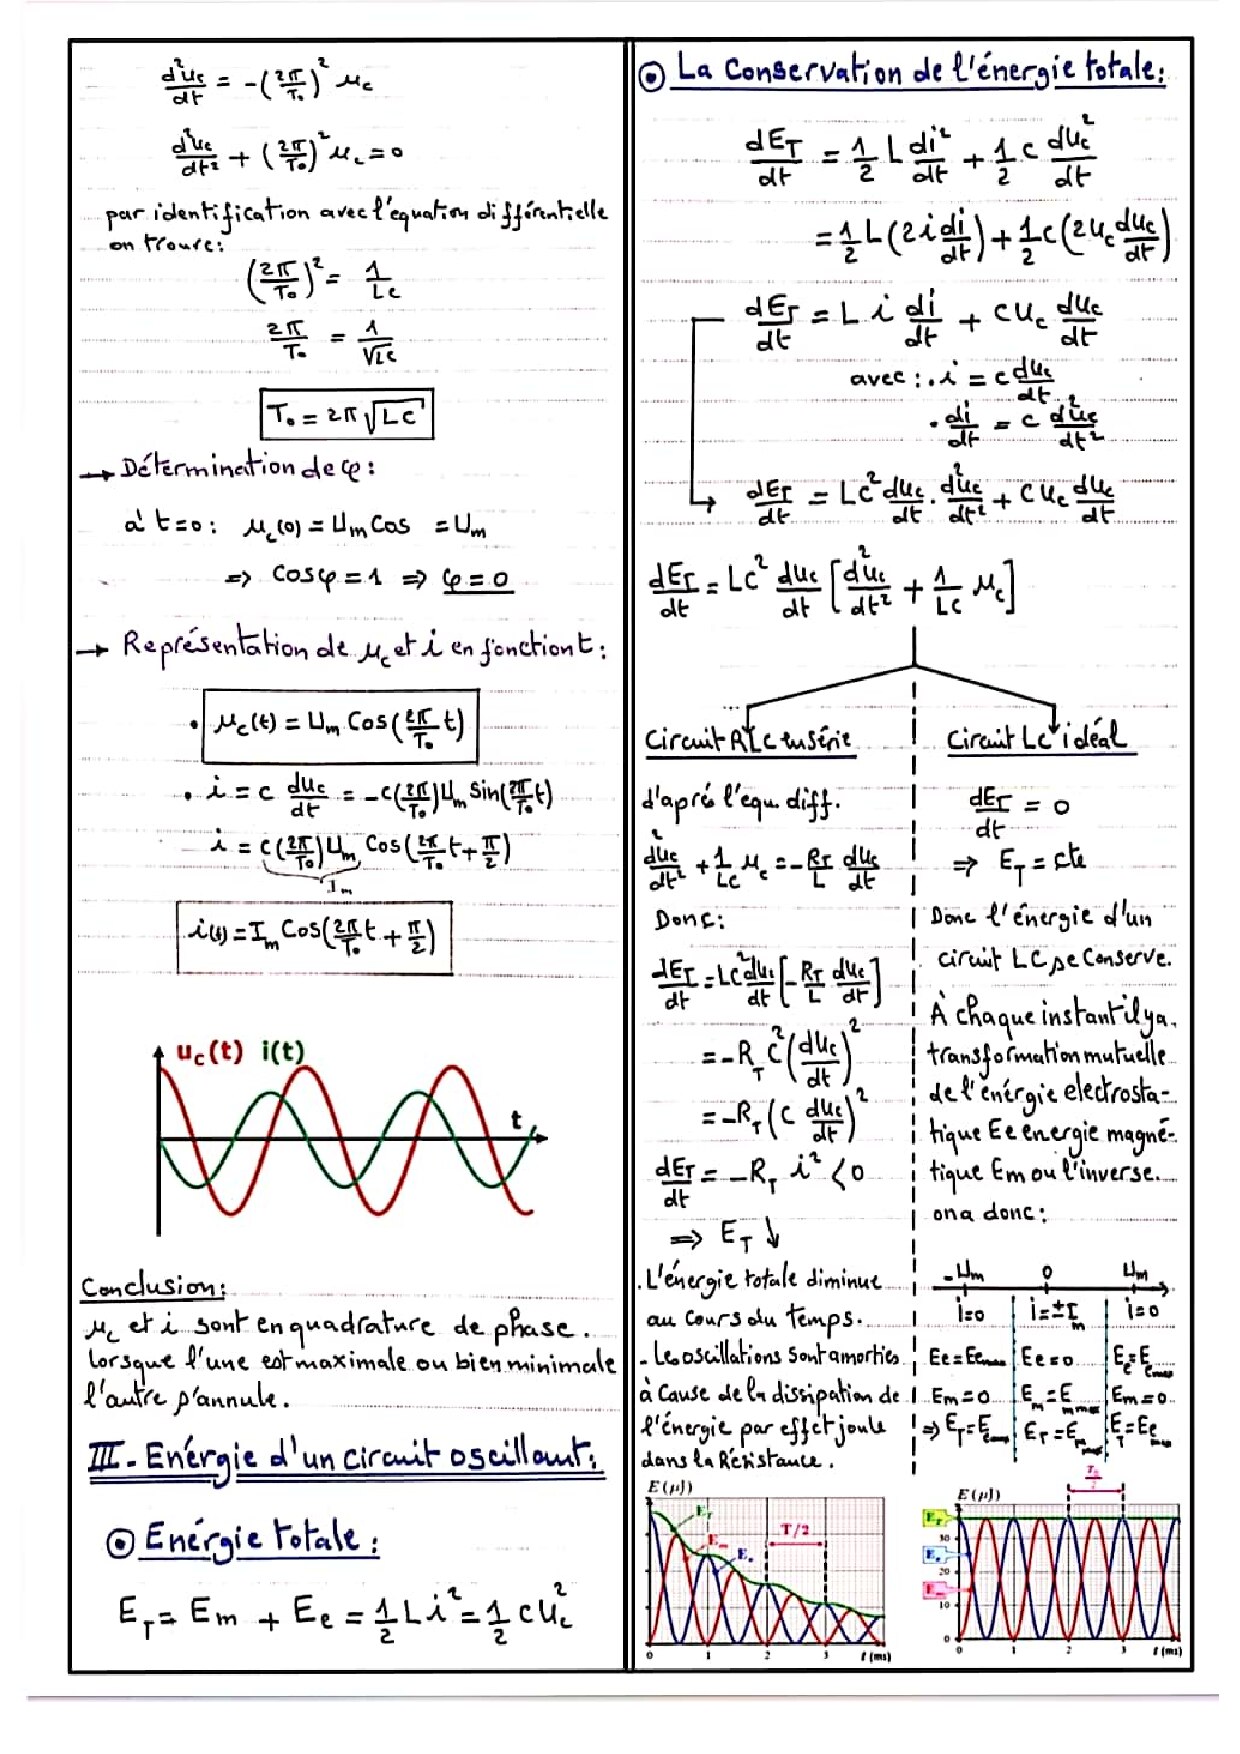 d²uc/dt = -(2π/T₀)² uc
d²uc/dt² + (2π/T₀)² uc = 0
par identification avec l'equation différentielle
on trouve:
(2π/T₀)² = 1/LC
2π/T₀ = 1/√LC
T₀ = 2π√LC
→ Détermination de φ:
à t=0: uc(0) = Um Cos = Um
=> Cosφ = 1 => φ = 0
→ Représentation de uc et i en fonction t:
• uc(t) = Um Cos(2π/T₀ t)
• i = c duc/dt = -c(2π/T₀)Um Sin(2π/T₀ t)
i = c(2π/T₀)Um Cos(2π/T₀ t + π/2)
Im
i(t) = Im Cos(2π/T₀ t + π/2)
uc(t) i(t)
t
Conclusion:
uc et i sont en quadrature de phase.
lorsque l'une est maximale ou bien minimale
l'autre s'annule.
III - Enérgie d'un circuit oscillant:
⊙ Enérgie totale:
ET = Em + Ee = 1/2 Li² = 1/2 cuc²
⊙ La Conservation de l'énergie totale:
dET/dt = 1/2 L di²/dt + 1/2 c duc²/dt
= 1/2 L(2i di/dt) + 1/2 c(2uc duc/dt)
dET/dt = L i di/dt + cuc duc/dt
avec: • i = c duc/dt
• di/dt = c d²uc/dt²
dET/dt = Lc² duc/dt . d²uc/dt² + cuc duc/dt
dET/dt = Lc² duc/dt [d²uc/dt² + 1/LC uc]
Circuit RLC en Série
d'aprés l'equ. diff.
d²uc/dt² + 1/LC uc = -RT/L duc/dt
Donc:
dET/dt = Lc² duc/dt [-RT/L duc/dt]
= -RT c² (duc/dt)²
= -RT (c duc/dt)²
dET/dt = -RT i² < 0
=> ET ↓
. L'énergie totale diminue
au cours du temps.
- Les oscillations sont amorties
à Cause de la dissipation de
l'énergie par effet joule
dans la Résistance.
E(µJ)
ET
Em
Ee
T/2
0 1 2 3 t(ms)
Circuit LC idéal
dET/dt = 0
=> ET = cte
Donc l'énergie d'un
circuit LC se Conserve.
À chaque instant il y a
transformation mutuelle
de l'énérgie electrosta-
tique Ee energie magné-
tique Em ou l'inverse.
on a donc:
-Um 0 Um
i=0 i=±Im i=0
Ee=Eemax Ee=0 Ee=Eemax
Em=0 Em=Emmax Em=0
=> ET=Eemax ET=Emmax ET=Eemax
T₀/2
E(µJ)
ET
30
Ee
20
Em
10
0
0 1 2 3 t(ms)